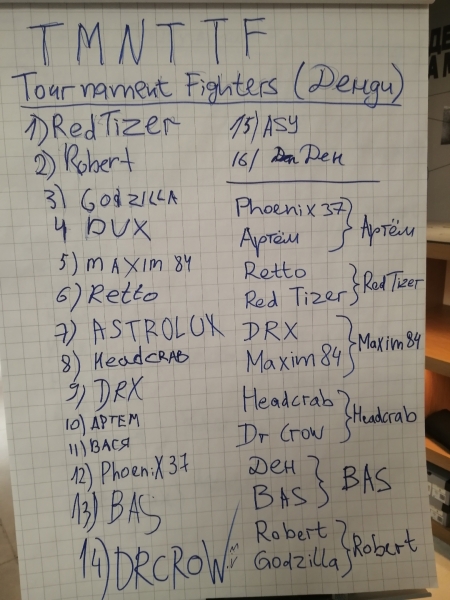 TMNT TF
Tournament Fighters (Денди)
1) RedTizer
2) Robert
3) GODZILLA
4 DUX
5) MAXIM 84
6) Retto
7) ASTROLUX
8) HeadCRAB
9) DRX
10) АРТЕМ
11) ВАСЯ
12) PhoeniX 37
13) BAS
14) DRCROW
15) ASY
16) Ден
Phoenix 37
Артём } Артём
Retto
Red Tizer } RedTizer
DRX
Maxim 84 } Maxim 84
Headcrab
Dr Crow } Headcrab
Ден
BAS } BAS
Robert
Godzilla } Robert